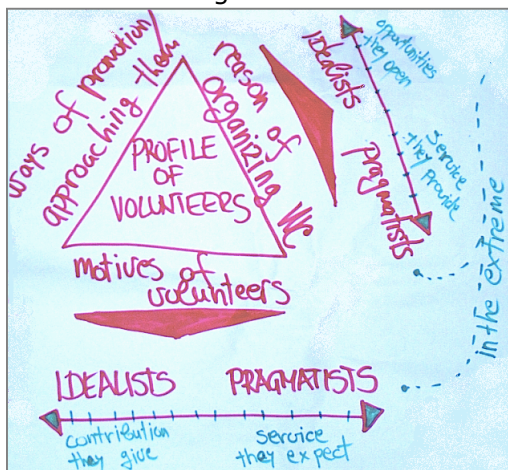 ways of promotion
approaching them
reason of
organizing WC
PROFILE
OF
VOLUNTEERS
motives of
volunteers
Idealists
pragmatists
opportunities
they open
service
they provide
in the extreme
IDEALISTS PRAGMATISTS
contribution
they give
service
they expect